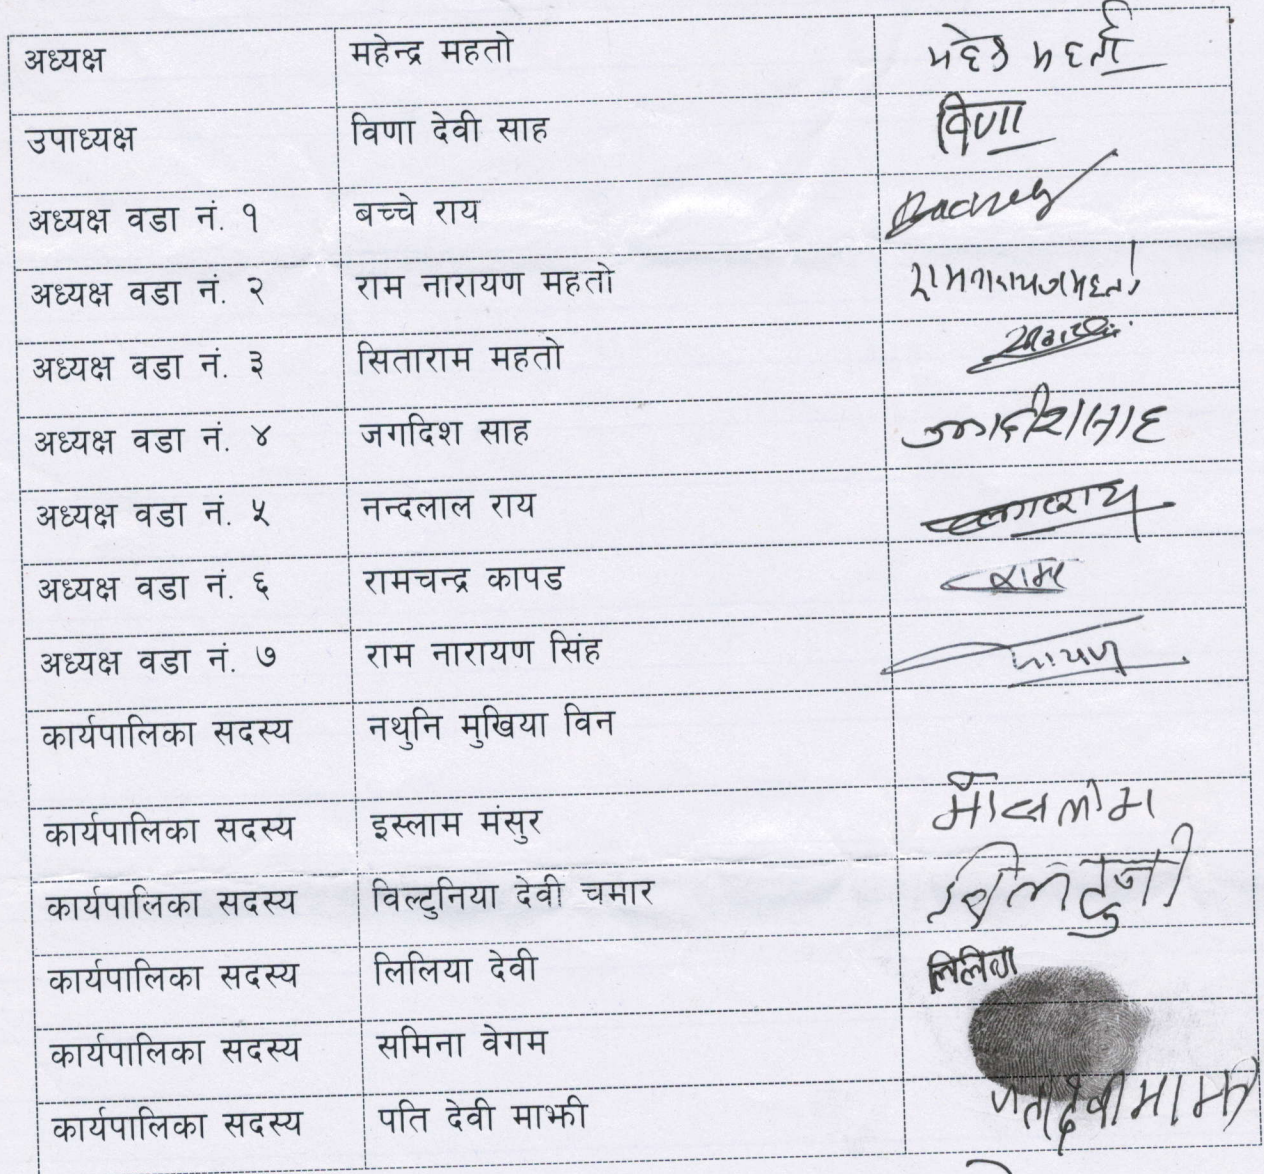 अध्यक्ष महेन्द्र महतो
उपाध्यक्ष विणा देवी साह विणा
अध्यक्ष वडा नं. १ बच्चे राय
अध्यक्ष वडा नं. २ राम नारायण महतो रामनारायणमहतो
अध्यक्ष वडा नं. ३ सिताराम महतो
अध्यक्ष वडा नं. ४ जगदिश साह जगदीशसाह
अध्यक्ष वडा नं. ५ नन्दलाल राय
अध्यक्ष वडा नं. ६ रामचन्द्र कापड
अध्यक्ष वडा नं. ७ राम नारायण सिंह
कार्यपालिका सदस्य नथुनि मुखिया विन
कार्यपालिका सदस्य इस्लाम मंसुर
कार्यपालिका सदस्य विल्टुनिया देवी चमार
कार्यपालिका सदस्य लिलिया देवी लिलिया
कार्यपालिका सदस्य समिना वेगम
कार्यपालिका सदस्य पति देवी माझी